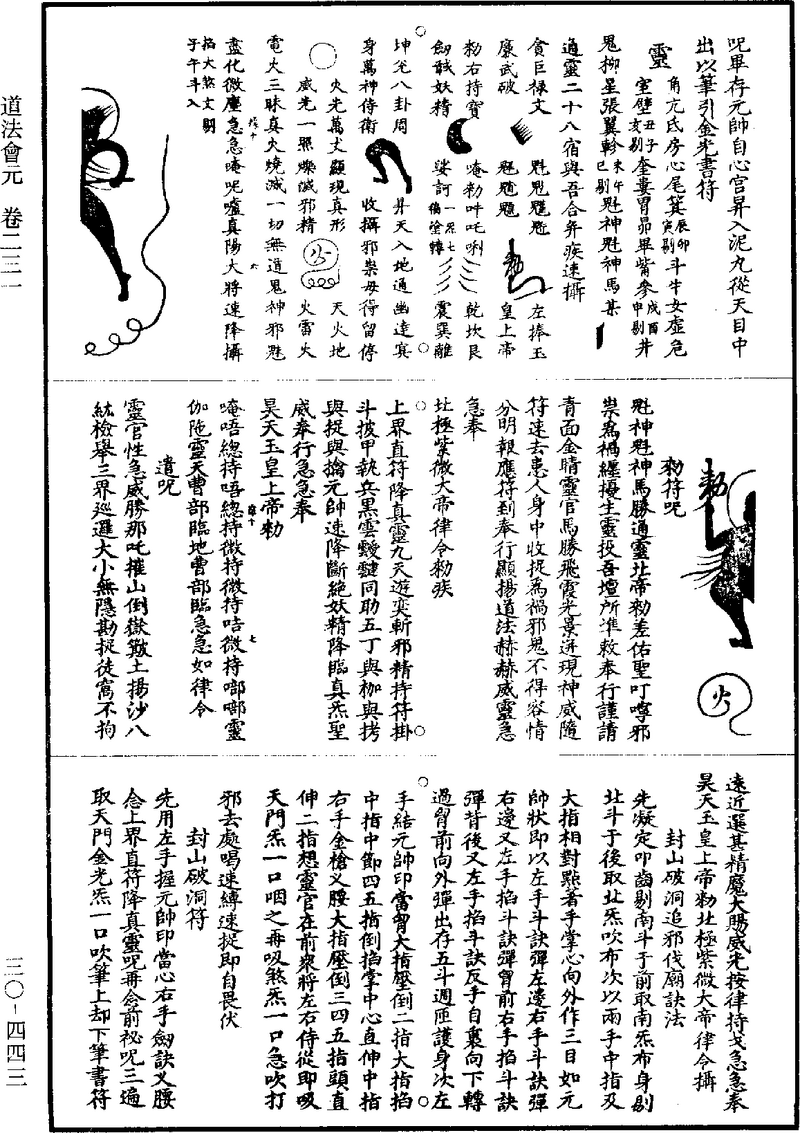 道法會元　卷二三一
三〇－四四三
呪畢存元帥自心宮昇入泥丸從天目中
出以筆引金光書符
靈　角亢氐房心尾箕辰卯寅剔斗牛女虛危
室壁丑子亥剔奎婁胃昴畢觜參戌酉申剔井
鬼柳星張翼軫未午巳剔魁神魁神馬某
通靈二十八宿與吾合奔疾速攝
貪巨祿文　左捧玉
廉武破　皇上帝
勑右持寶　唵勑吽吒唎　乾坎艮
劒馘妖精　娑訶　震巽離
坤兌八卦周　昇天入地通幽達冥
身萬神侍衛　收攝邪祟毋得留停
火光萬丈顯現真形　天火地
威光一照爍滅邪精　火雷火
電火三昧真火燒滅一切無道鬼神邪魁
盡化微塵急急唵呢嚧真陽大將速降攝
掐大煞文剔
子午斗入
魁神魁神馬勝通靈北帝勑差佑聖叮嚀邪
勑符呪
祟為禍纏擾生靈投吾壇所準敕奉行謹請
青面金睛靈官馬勝飛霞光景迸現神威隨
符速去患人身中收捉為禍邪鬼不得容情
分明報應符到奉行顯揚道法赫赫威靈急
急奉
北極紫微大帝律令勑疾
上界直符降真靈九天遊奕斬邪精持符掛
斗披甲執兵黑雲靉靆同助五丁與枷與拷
與捉與擒元帥速降斷絕妖精降臨真炁聖
威奉行急急奉
昊天玉皇上帝勑
唵唔總持唔總持微持微持咭微持唧唧靈
伽陁靈天曹部臨地曹部臨急急如律令
遣呪
靈官性急威勝那吒摧山倒嶽黻土揚沙八
紘檢舉三界巡邏大小無隱勘捉徒窩不拘
遠近選甚精魔大賜威光按律持戈急急奉
昊天玉皇上帝勑北極紫微大帝律令攝
封山破洞追邪伐廟訣法
先凝定叩齒剔南斗子前取南炁布身剔
北斗于後取北炁吹布次以兩手中指及
大指相對點著手掌心向外作三目如元
帥狀即以左手斗訣彈左邊右手斗訣彈
右邊又左手掐斗訣彈胷前右手掐斗訣
彈背後又左手掐斗訣反手自裏向下轉
過胷前向外彈出存五斗週匝護身次左
手結元帥印當胷大指壓倒二指大指掐
中指中節四五指倒掐掌中心直伸中指
右手金槍义腰大指壓倒三四五指頭直
伸二指想靈官在前來將左右侍從即吸
天門炁一口咽之再吸煞炁一口急吹打
邪去處喝速縛速捉即自畏伏
封山破洞符
先用左手握元帥印當心右手劒訣义腰
念上界直符降真靈呪再念前祕呪三遍
取天門金光炁一口吹筆上却下筆書符